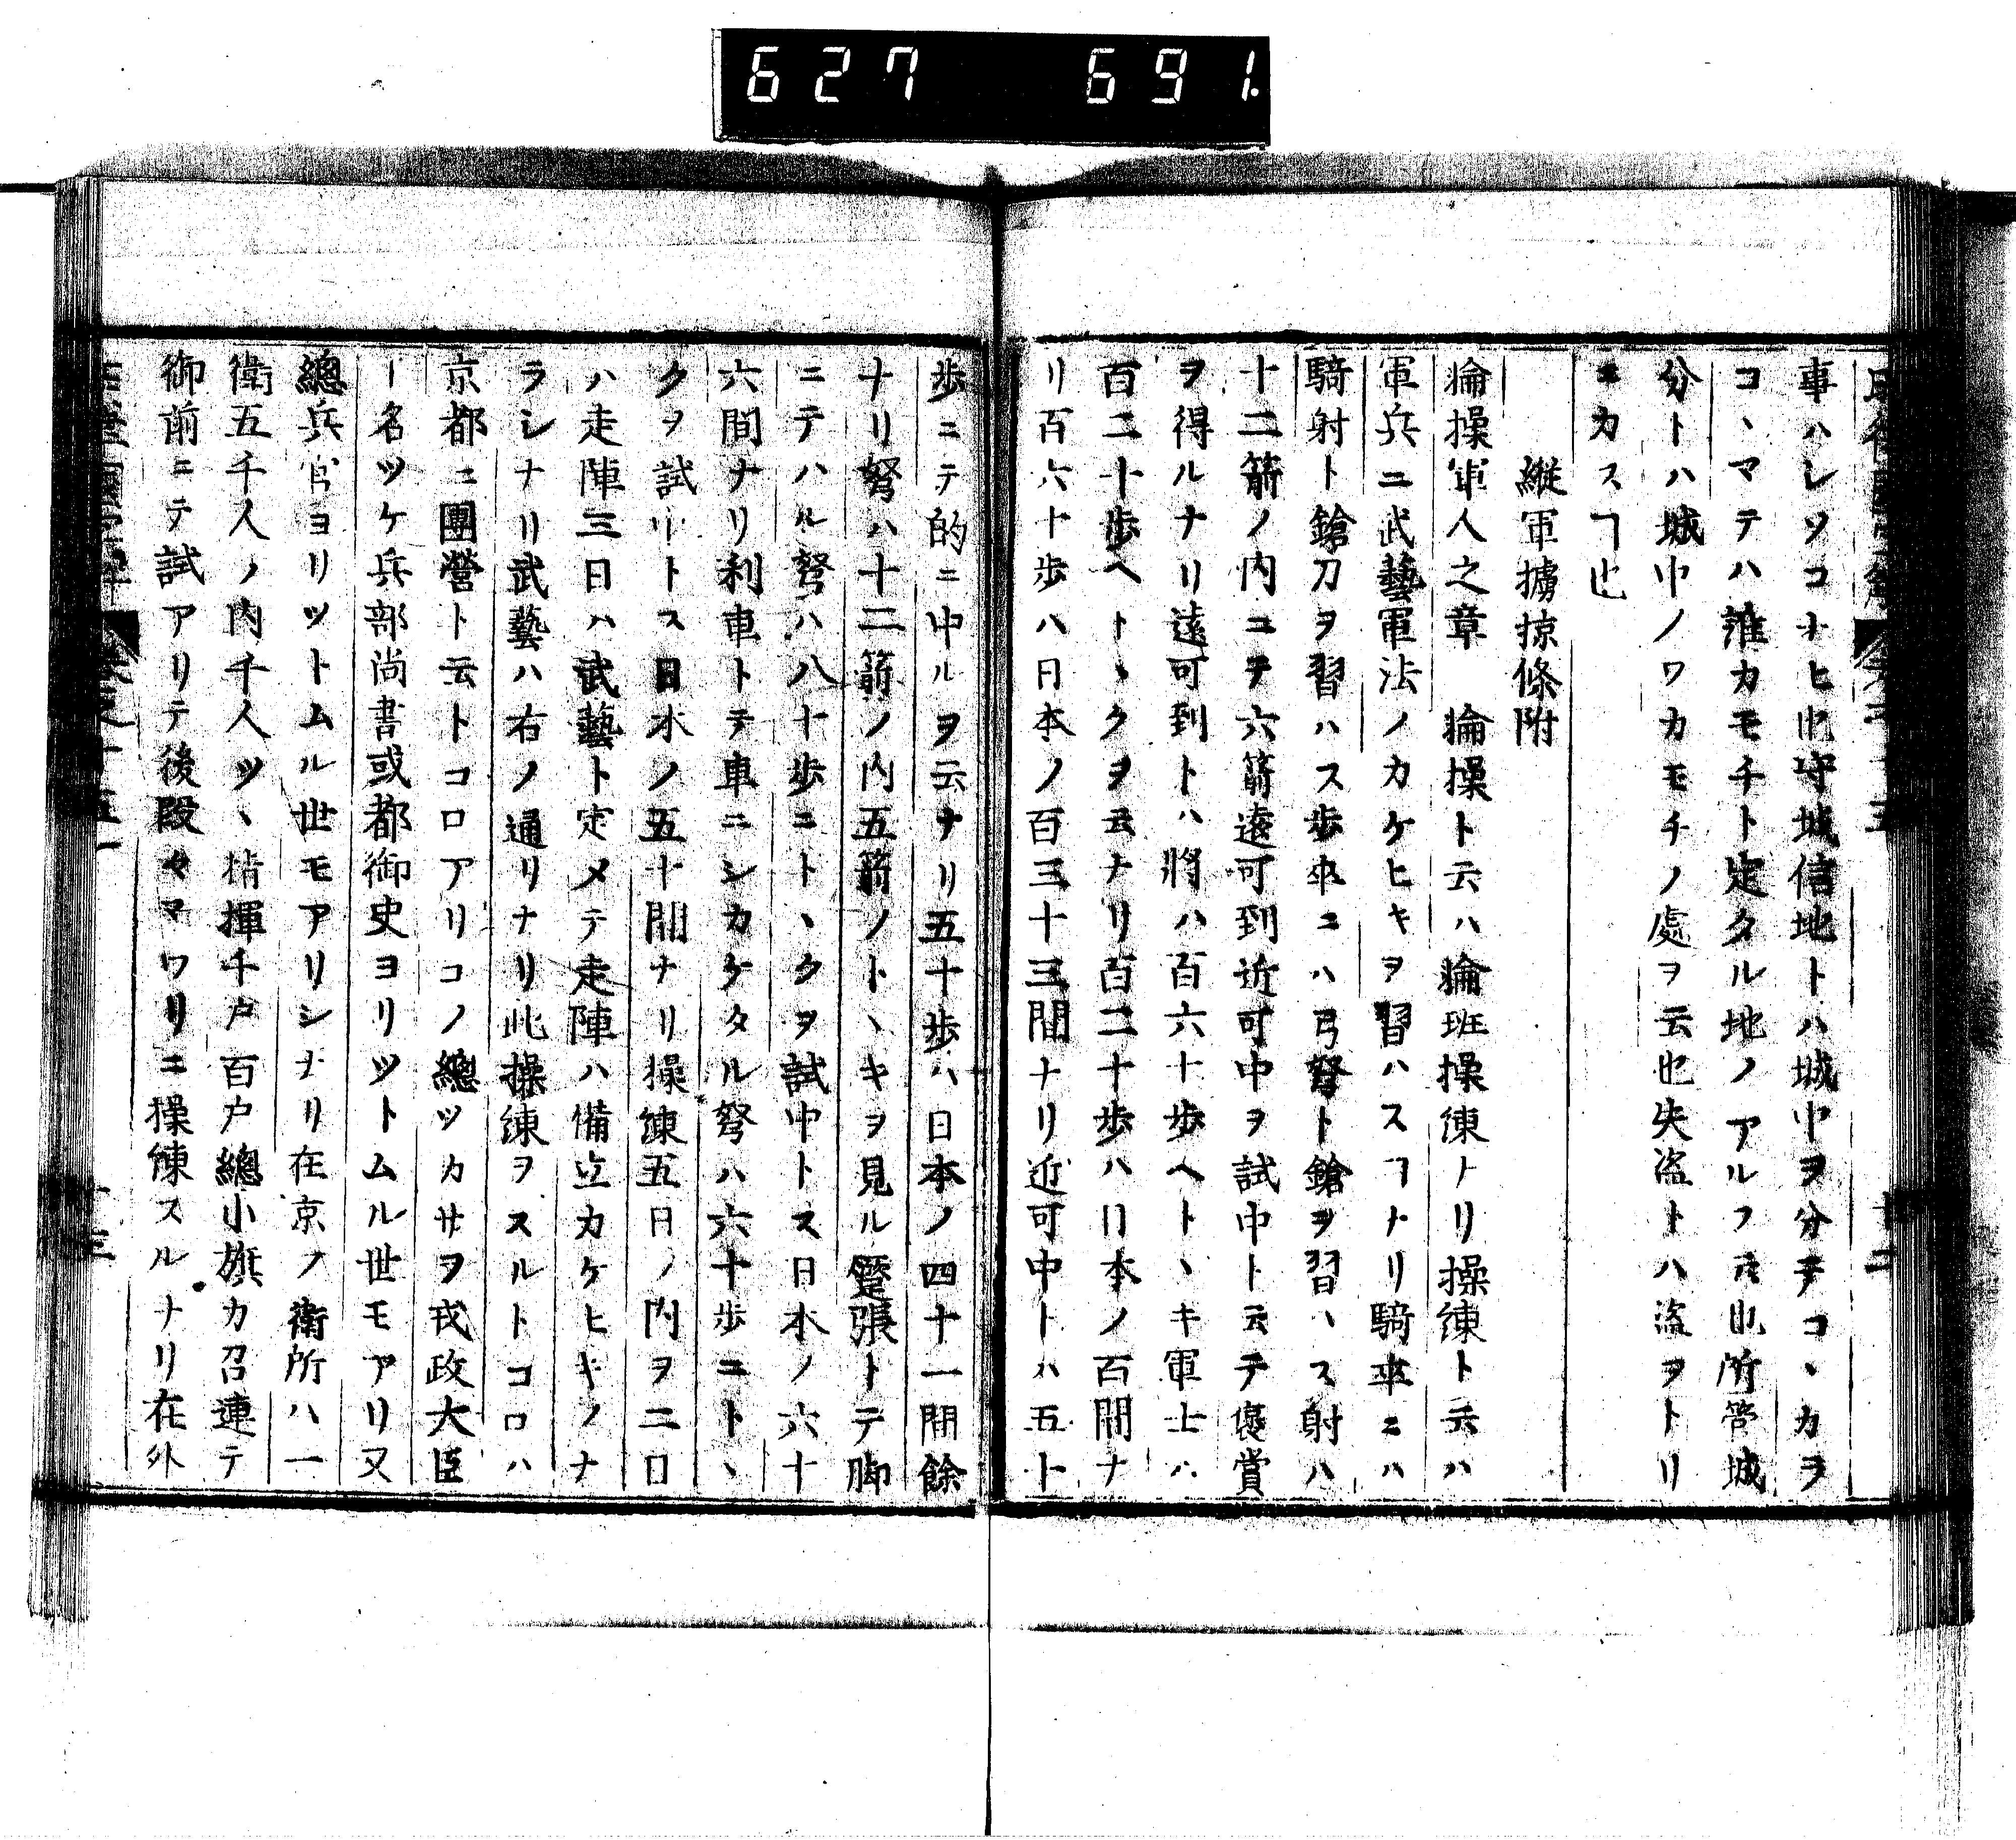 627 691.
事ハシソコナヒ也守城信地トハ城中ヲ分チコヽカヲ
コヽマテハ誰カモチト定タル地ノアルフ云也所管城
分トハ城中ノワカモチノ處ヲ云也失盗トハ盗ヲトリ
ニカスヿ也
縱軍擄掠條附
操軍人之章 操ト云ハ班操練ナリ操練ト云ハ
軍兵ニ武藝軍法ノカケヒキヲ習ハスヿナリ騎卒ニハ
騎射ト鎗刀ヲ習ハス歩卒ニハ弓弩ト鎗ヲ習ハス射ハ
十二箭ノ内ニテ六箭遠可到近可中ヲ試中ト云テ褒賞
ヲ得ルナリ遠可到トハ將ハ百六十歩ヘトヽキ軍士ハ
百二十歩ヘトヽクヲ云ナリ百二十歩ハ日本ノ百間ナ
リ百六十歩ハ日本ノ百三十三間ナリ近可中トハ五十
歩ニテ的ニ中ルヲ云ナリ五十歩ハ日本ノ四十一間餘
ナリ弩ハ十二箭ノ内五箭ノトヽキヲ見ル蹵張トテ脚
ニテハル弩ハ八十歩ニトヽクヲ試中トス日本ノ六十
六間ナリ利車トテ車ニシカケタル弩ハ六十歩ニトヽ
クヲ試中トス日本ノ五十間ナリ操練五日ノ内ヲ二日
ハ走陣三日ハ武藝ト定メテ走陣ハ備立カケヒキノナ
ラシナリ武藝ハ右ノ通リナリ此操練ヲスルトコロハ
京都ニ團營ト云トコロアリコノ總ツカサヲ戎政大臣
ト名ツケ兵部尚書或都御史ヨリツトムル世モアリ又
總兵官ヨリツトムル世モアリシナリ在京ノ衛所ハ一
衛五千人ノ内千人ツヽ指揮千戸百戸總小旗カ召連テ
御前ニテ試アリテ後段々マワリニ操練スルナリ在外